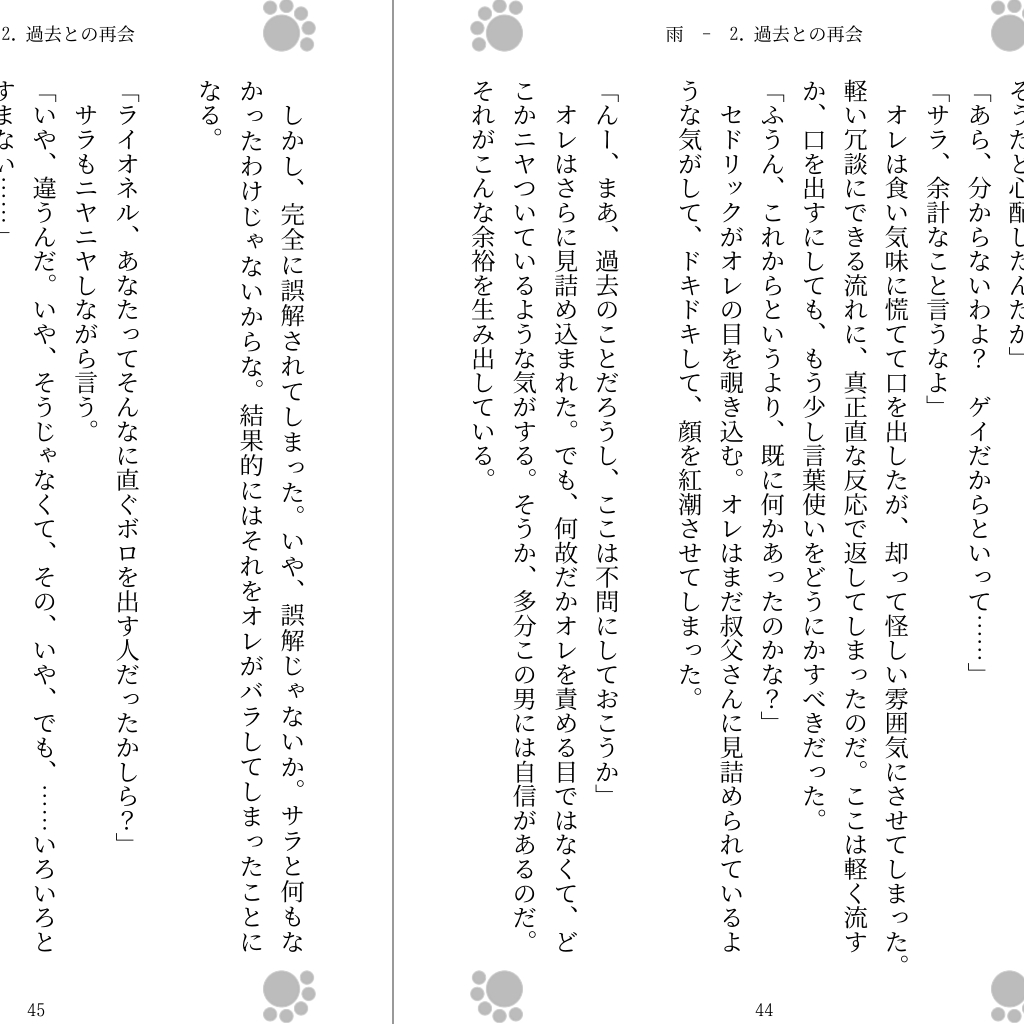 雨 - 2. 過去との再会
そうだと心配したんだが」
「あら、分からないわよ？　ゲイだからといって……」
「サラ、余計なこと言うなよ」
　オレは食い気味に慌てて口を出したが、却って怪しい雰囲気にさせてしまった。
軽い冗談にできる流れに、真正直な反応で返してしまったのだ。ここは軽く流す
か、口を出すにしても、もう少し言葉使いをどうにかすべきだった。
「ふうん、これからというより、既に何かあったのかな？」
　セドリックがオレの目を覗き込む。オレはまだ叔父さんに見詰められているよ
うな気がして、ドキドキして、顔を紅潮させてしまった。
「んー、まあ、過去のことだろうし、ここは不問にしておこうか」
　オレはさらに見詰め込まれた。でも、何故だかオレを責める目ではなくて、ど
こかニヤついているような気がする。そうか、多分この男には自信があるのだ。
それがこんな余裕を生み出している。
44
2. 過去との再会
　しかし、完全に誤解されてしまった。いや、誤解じゃないか。サラと何もな
かったわけじゃないからな。結果的にはそれをオレがバラしてしまったことに
なる。
「ライオネル、あなたってそんなに直ぐボロを出す人だったかしら？」
　サラもニヤニヤしながら言う。
「いや、違うんだ。いや、そうじゃなくて、その、いや、でも、……いろいろと
すまない……」
45